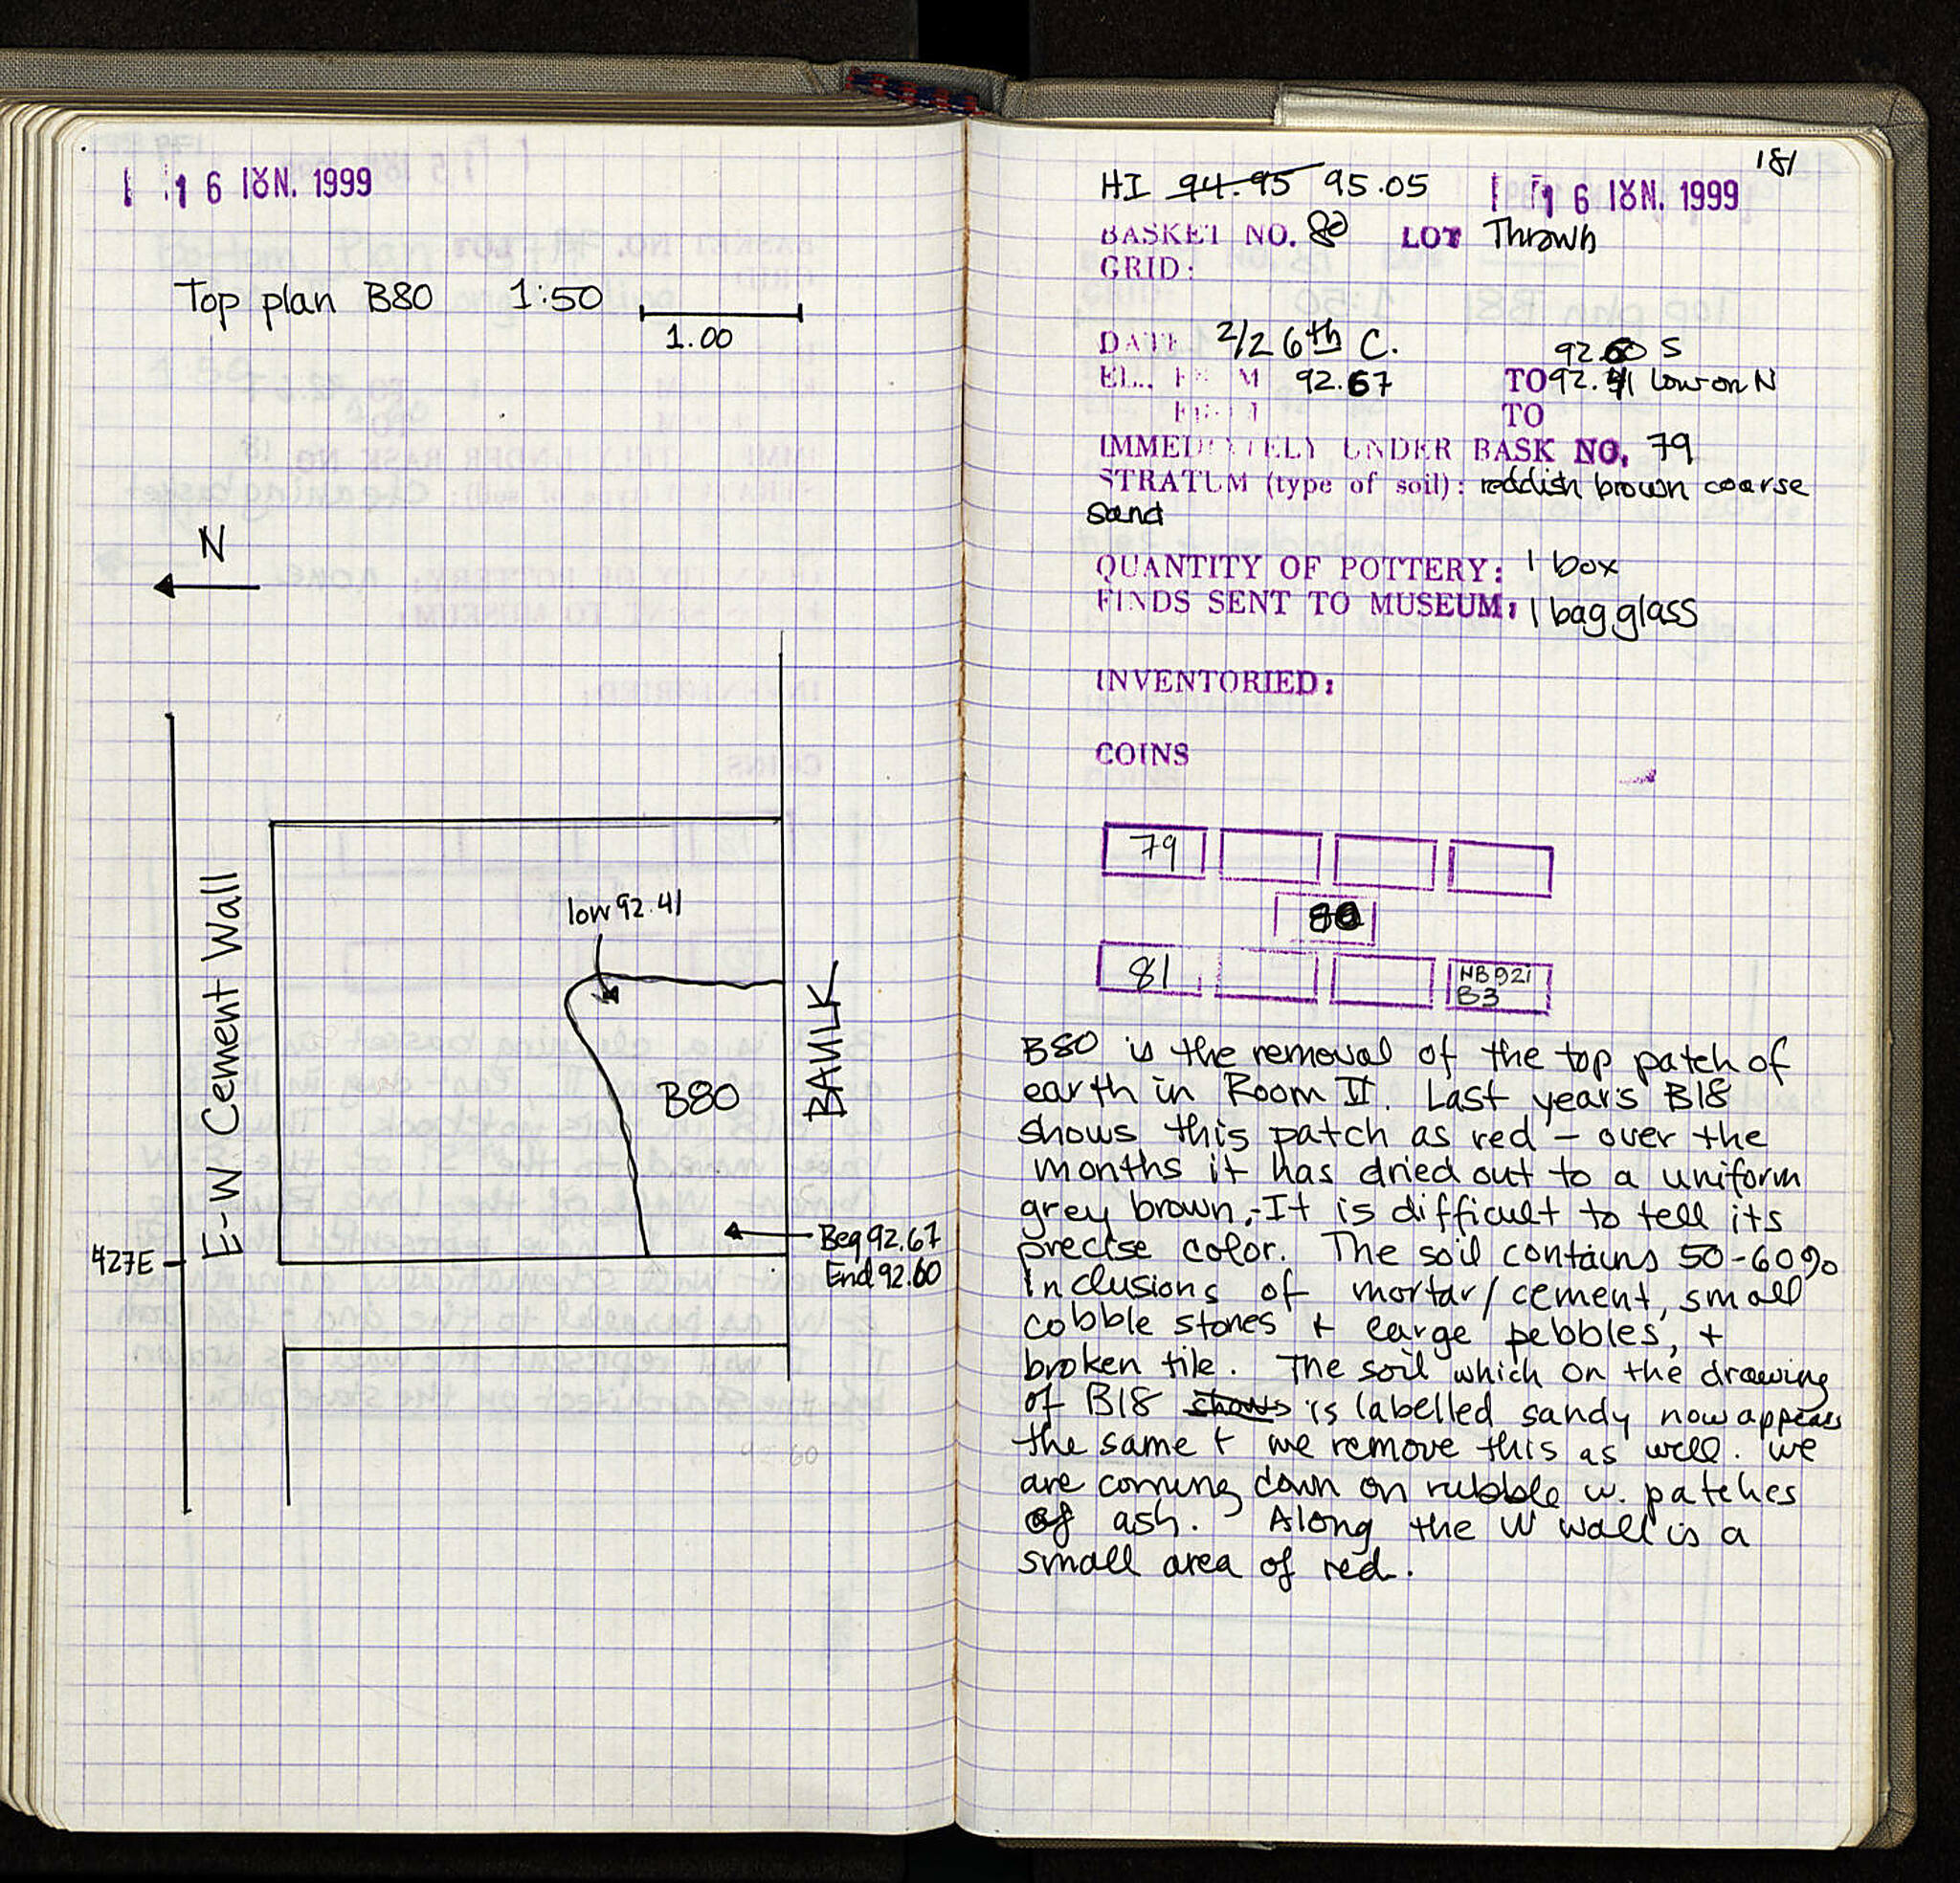 16 ΙΟΥΝ. 1999
Top plan B80 1:50
1.00
N
low 92.41
E-W Cement Wall
B80
BAULK
427E
Beg 92.67
End 92.60
181
HI 94.95 95.05
16 ΙΟΥΝ. 1999
BASKET NO. 80 LOT Thrown
GRID:
DATE 2/2 6th C.
92.60 S
EL., FROM 92.67 TO 92.41 low on N
FROM TO
IMMEDIATELY UNDER BASK NO. 79
STRATUM (type of soil): reddish brown coarse
sand
QUANTITY OF POTTERY: 1 box
FINDS SENT TO MUSEUM: 1 bag glass
INVENTORIED:
COINS
79
80
81 NB 921
B3
B80 is the removal of the top patch of
earth in Room II. Last year's B18
shows this patch as red - over the
months it has dried out to a uniform
grey brown. It is difficult to tell its
precise color. The soil contains 50-60%
inclusions of mortar/cement, small
cobble stones + large pebbles, +
broken tile. The soil which on the drawing
of B18 shows is labelled sandy now appears
the same + we remove this as well. We
are coming down on rubble w. patches
of ash. Along the W wall is a
small area of red.